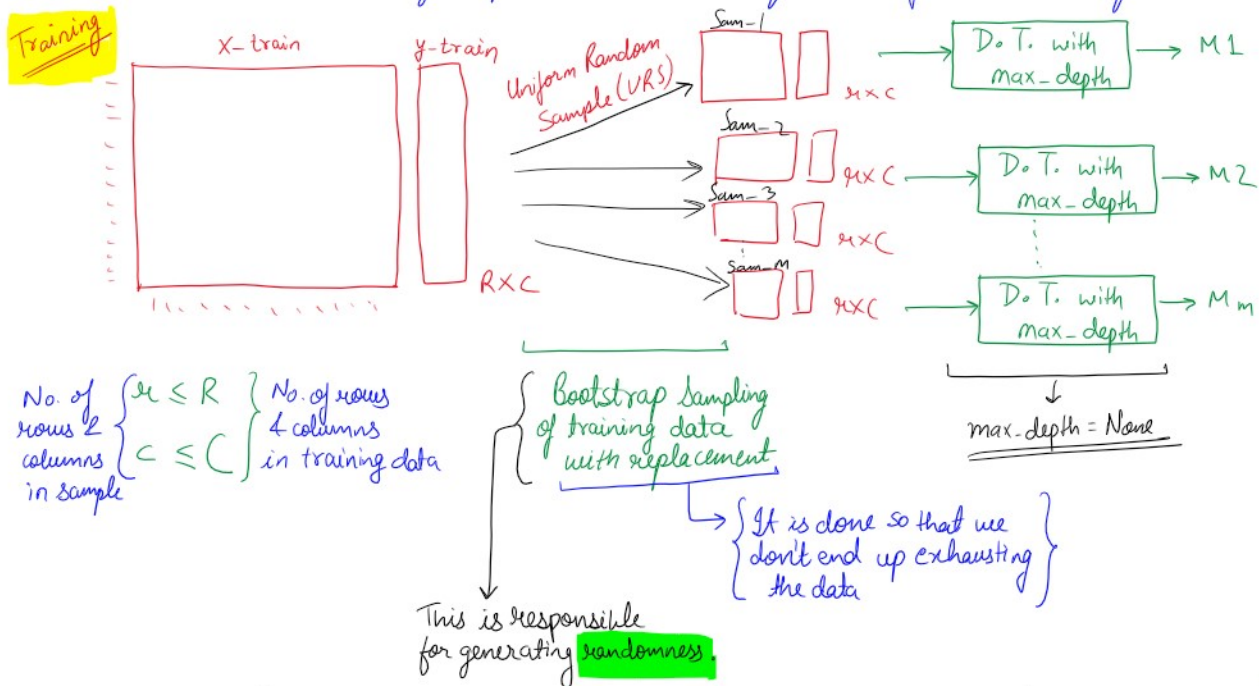 Training
x-train
y-train
Uniform Random
Sample (URS)
RXC
Sam-1
rxc
D.T. with
max_depth
M1
Sam-2
rxc
D.T. with
max_depth
M2
Sam-3
rxc
Sam-m
rxc
D.T. with
max_depth
Mm
No. of
rows &
columns
in sample
r ≤ R
c ≤ C
No. of rows
& columns
in training data
Bootstrap Sampling
of training data
with replacement
max_depth = None
It is done so that we
don't end up exhausting
the data
This is responsible
for generating randomness.